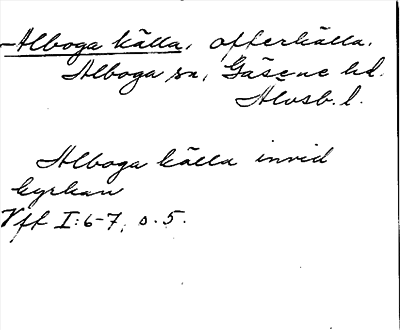 Alboga källa, offerkälla.
Alboga sn, Gäsene hd.
Älvsb. l.
Alboga källa invid
kyrkan
Vff I:6-7, s. 5.